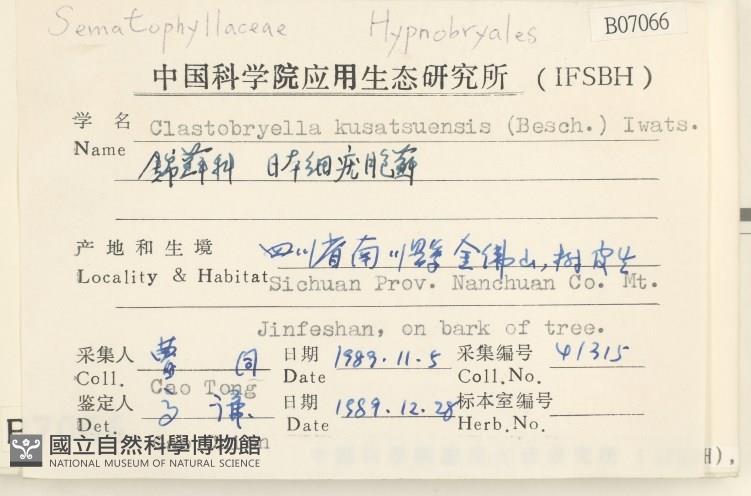 Sematophyllaceae Hypnobryales
B07066
中国科学院应用生态研究所 (IFSBH)
学名 Clastobryella kusatsuensis (Besch.) Iwats.
Name 錦蘚科 日本细疣胞蘚
产地和生境 四川省南川縣金佛山,樹皮生
Locality & Habitat Sichuan Prov. Nanchuan Co. Mt.
Jinfeshan, on bark of tree.
采集人 曹同 日期 1989.11.5 采集编号 41315
Coll. Cao Tong Date Coll.No.
鉴定人 高谦 日期 1989.12.28 标本室编号
Det. Date Herb.No.
國立自然科學博物館
NATIONAL MUSEUM OF NATURAL SCIENCE